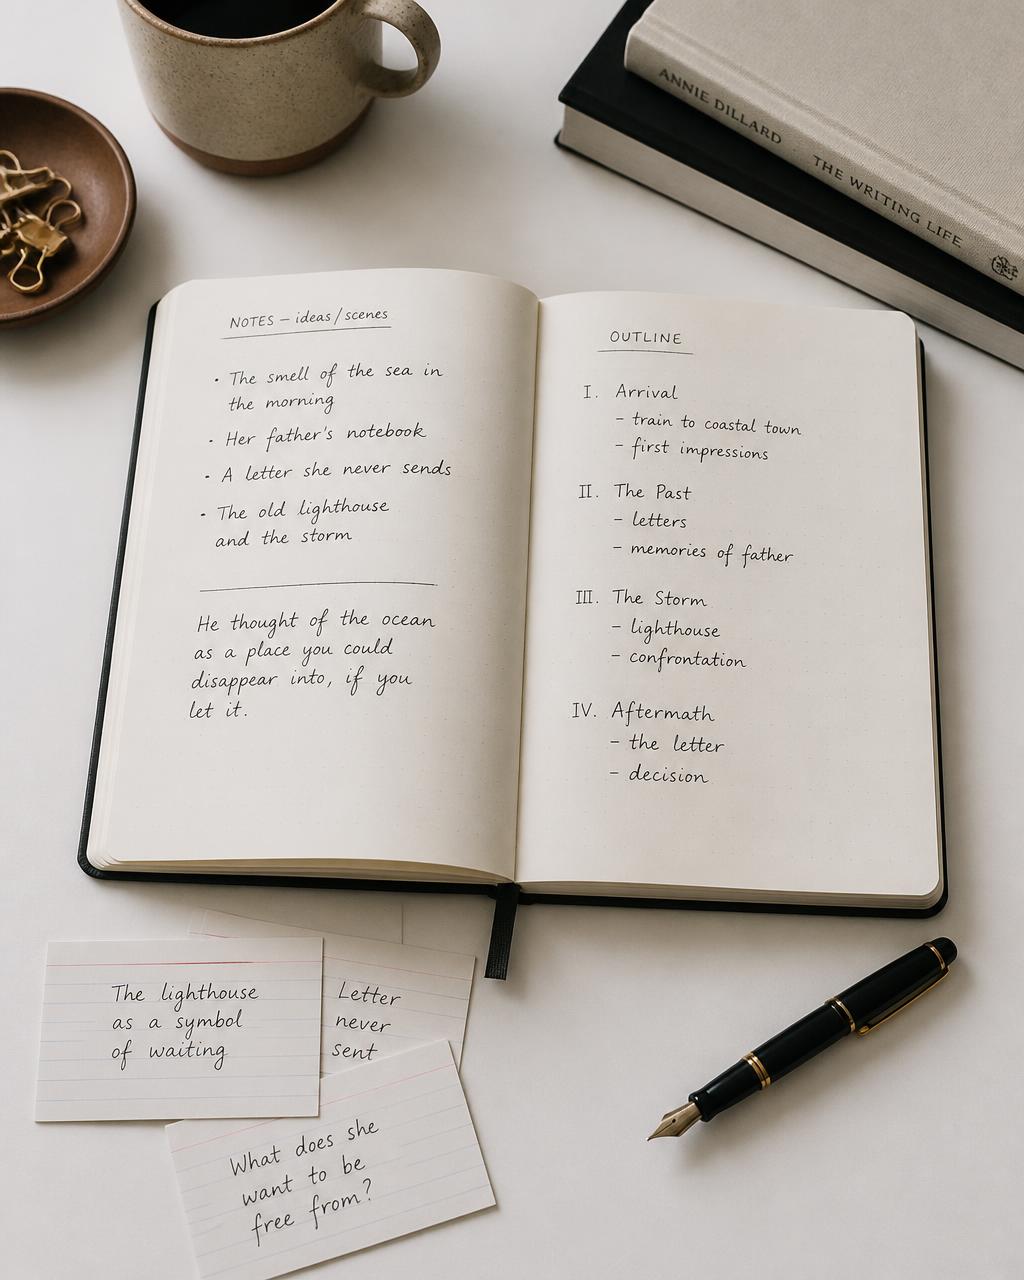 ANNIE DILLARD THE WRITING LIFE
NOTES – ideas / scenes
• The smell of the sea in
the morning
• Her father's notebook
• A letter she never sends
• The old lighthouse
and the storm
He thought of the ocean
as a place you could
disappear into, if you
let it.
OUTLINE
I. Arrival
– train to coastal town
– first impressions
II. The Past
– letters
– memories of father
III. The Storm
– lighthouse
– confrontation
IV. Aftermath
– the letter
– decision
The lighthouse
as a symbol
of waiting
Letter
never
sent
What does she
want to be
free from?